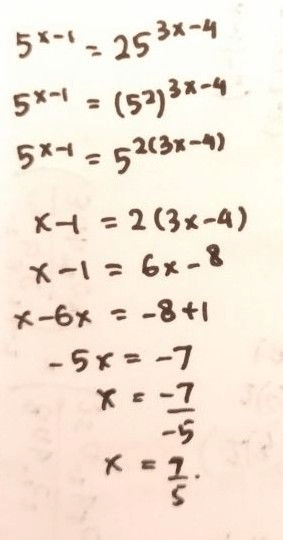 5^{x-1} = 25^{3x-4}
5^{x-1} = (5^2)^{3x-4}
5^{x-1} = 5^{2(3x-4)}
x-1 = 2(3x-4)
x-1 = 6x-8
x-6x = -8+1
-5x = -7
x = \frac{-7}{-5}
x = \frac{7}{5}.